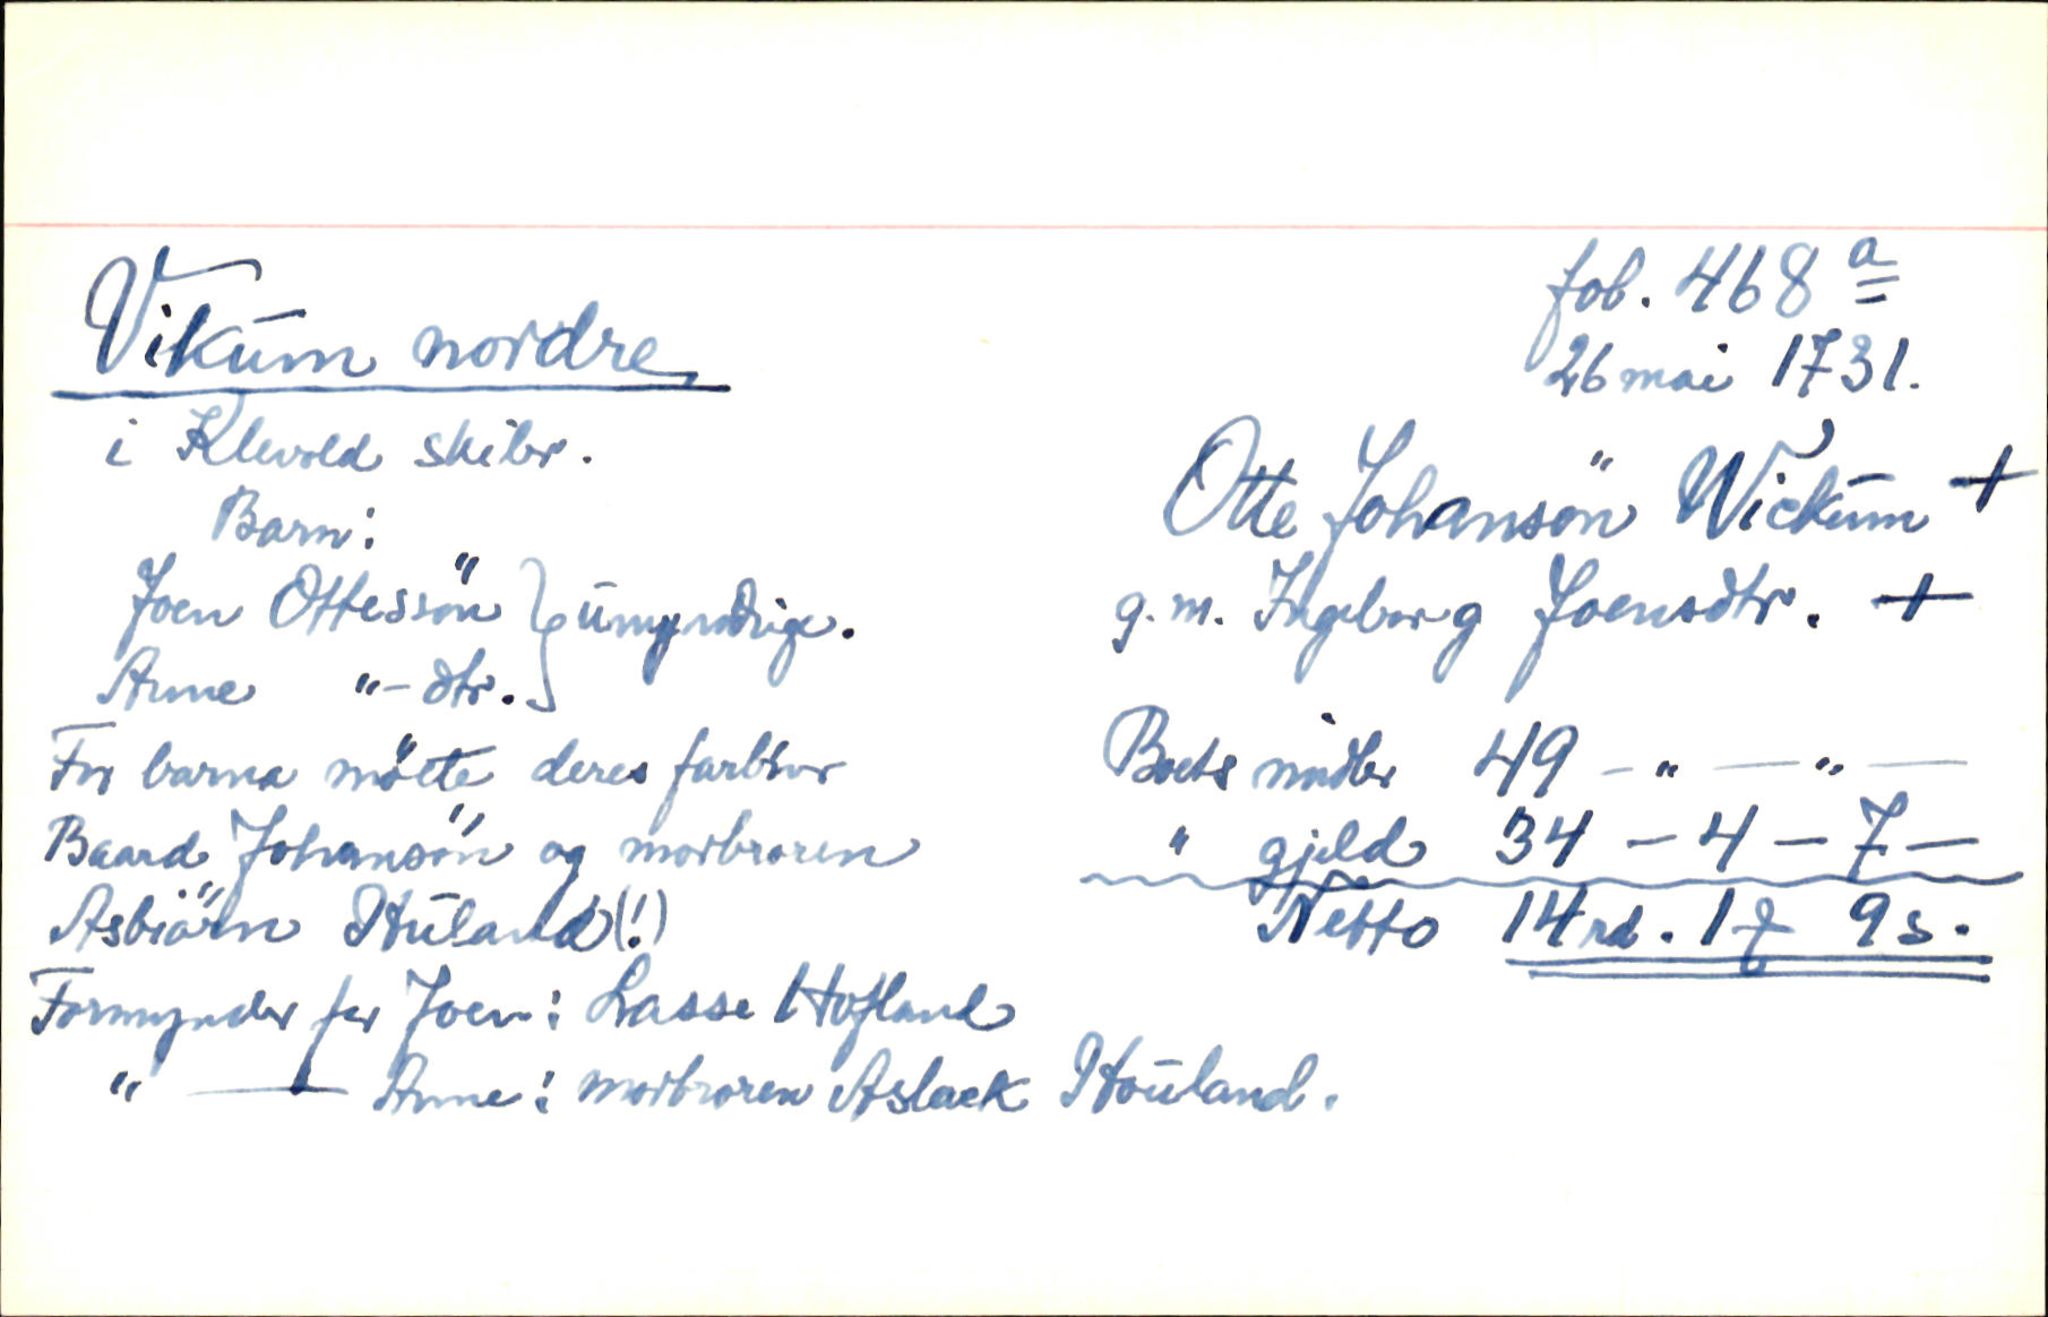 Vikum nordre
i Klevold skibr.
Barn:
Joen Ottessön } umyndige.
Anne " - dtr.
For barna mötte deres farbror
Baard Johansön og morbroren
Asbiörn Huland (!)
Formynder for Joen: Lasse Hofland
" — Anne: morbroren Aslack Houland.
fol. 468 a
26 mai 1731.
Otte Johansön Wickum +
g. m. Ingeborg Joensdtr. +
Boets midler 49 - " - " -
" gjeld 34 - 4 - 7 -
Netto 14 rd. 1 9 s.